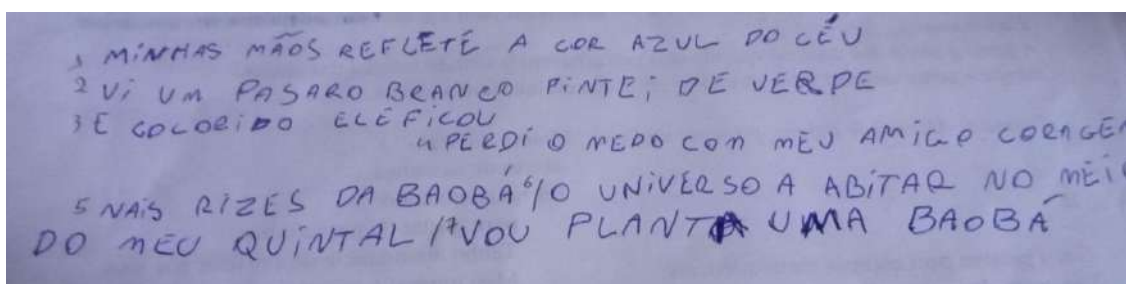 1 MINHAS MÃOS REFLETÉ A COR AZUL DO CÉU
2 Vi UM PASARO BRANCO PiNTEi DE VERDE
3 E COLORIDO ELE FICOU
4 PERDI O MEDO COM MEU AMIGO CORAGEM
5 NAIS RIZES DA BAOBÁ 6/O UNIVERSO A ABITAR NO MEIO
DO MEU QUINTAL /7 VOU PLANTA UMA BAOBÁ